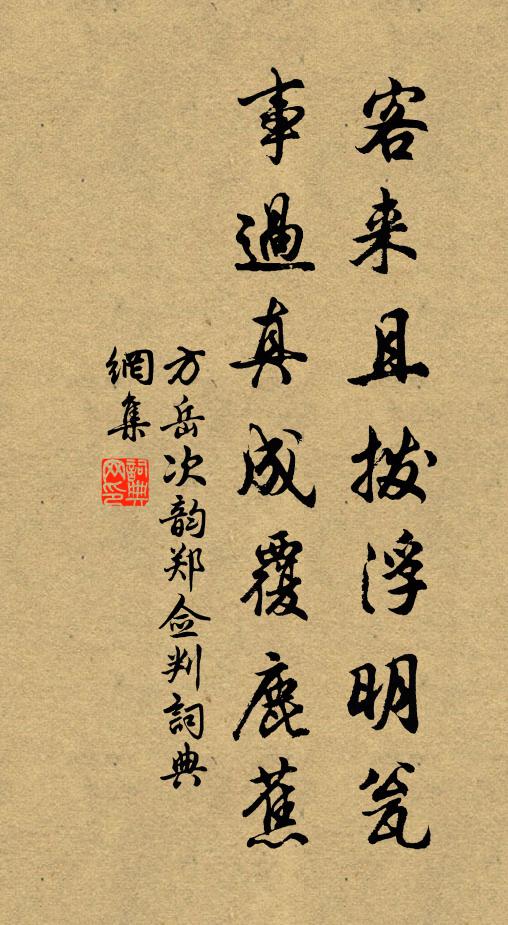 客来且拨浮明瓮
事過真成覆鹿蕉
方岳次韵郑佥判詞典
網集
詞典网印